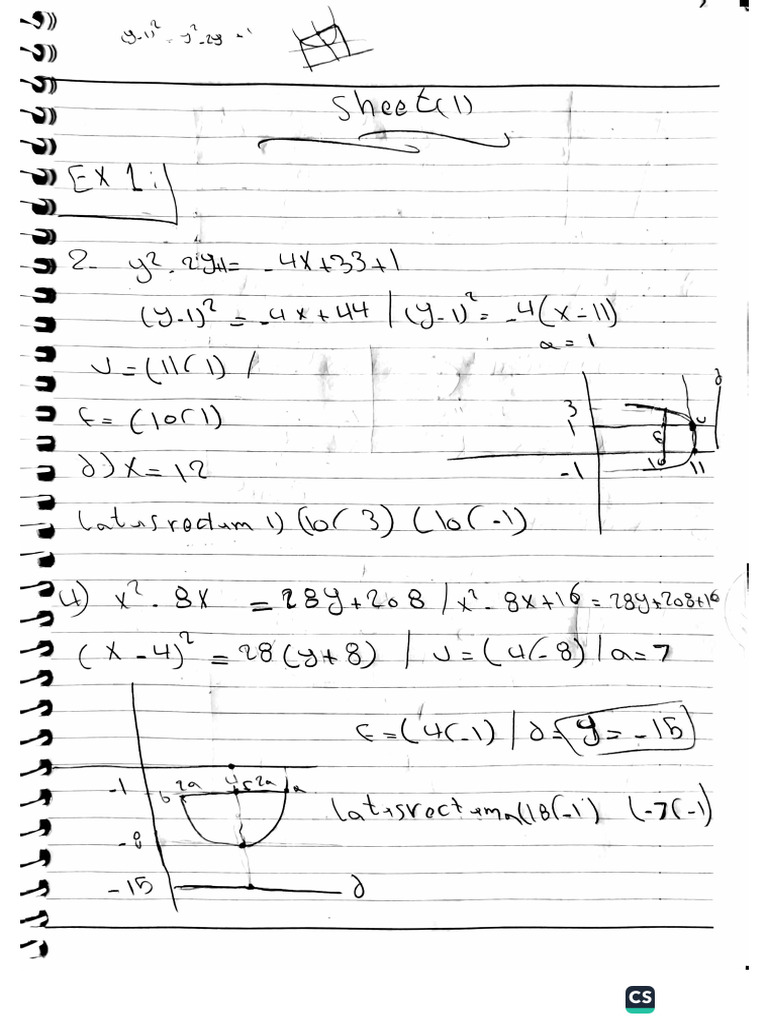 (y-1)² = y² -2y +1
Sheet(1)
EX 1:
2- y² - 2y+1 = -4x+33+1
(y-1)² = -4x+44 / (y-1)² = -4(x-11)
a=1
v=(11(1) /
F=(10(1)
d) x=12
3
1
-1
v
6
10
11
d
Latusrectum 1) (10( 3) (10( -1)
4) x² - 8x = 28y+208 / x² - 8x+16 = 28y+208+16
(x-4)² = 28(y+8) / v=(4(-8) / a=7
F=(4(-1) / d= y=-15
-1 b 2a 4 F 2a a
Latusrectuma(18(-1) (-7(-1)
-8
-15 d
CS